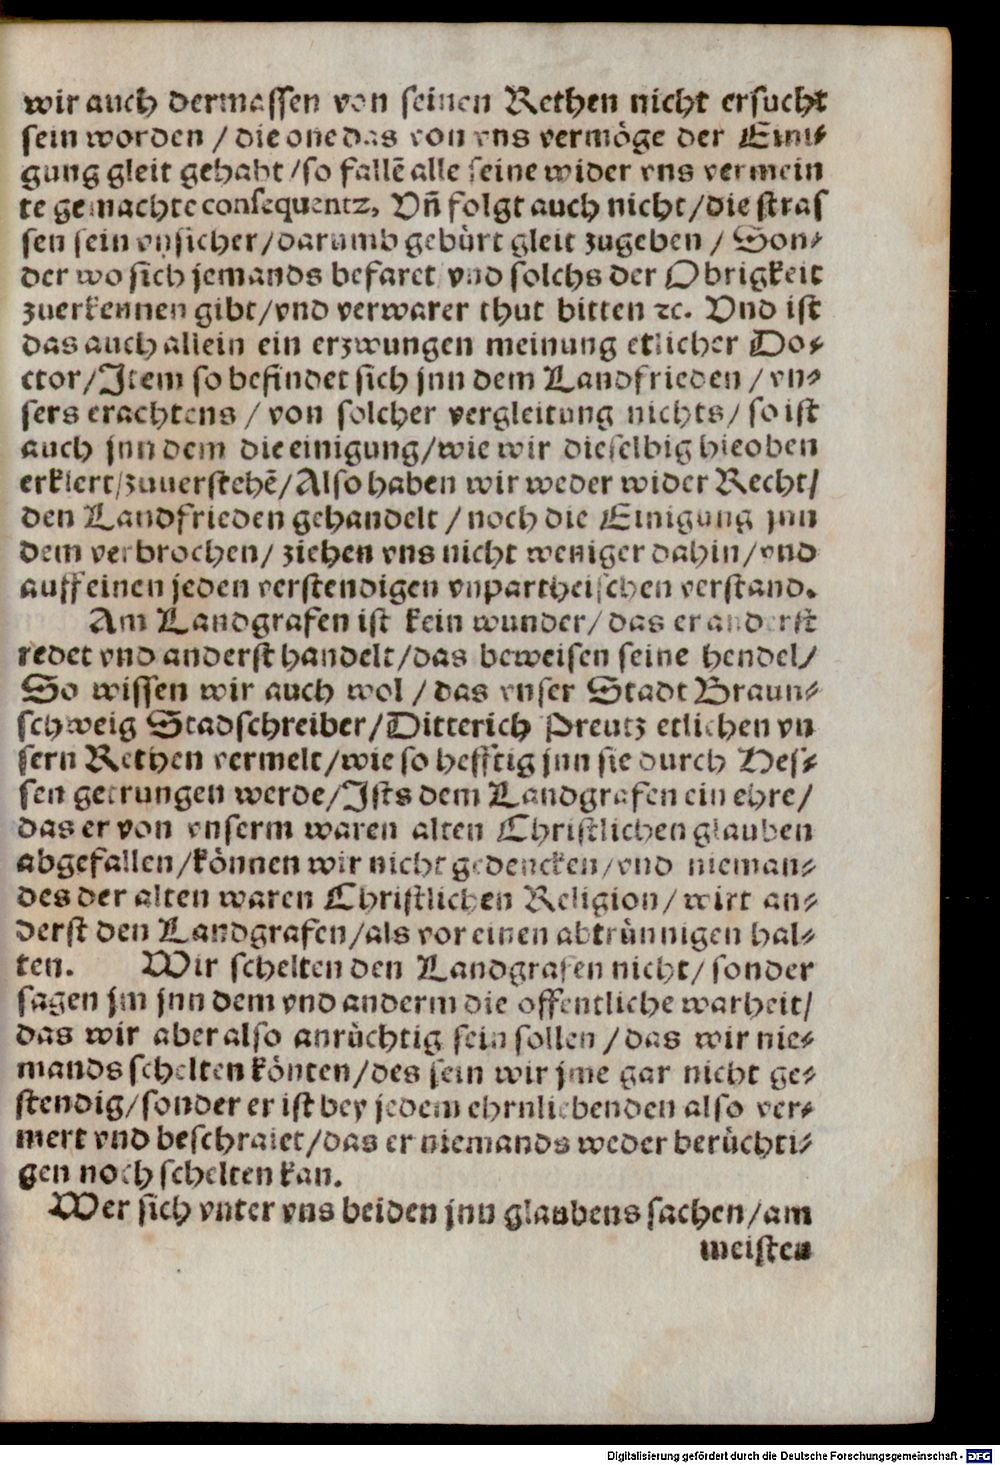 wir auch dermassen von seinen Rethen nicht ersucht
sein worden / die one das von vns vermöge der Eini⸗
gung gleit gehabt /so fallẽ alle seine wider vns vermein
te gemachte consequentz, Vñ folgt auch nicht/die stras
sen sein vnsicher/darumb gebürt gleit zugeben / Son⸗
der wo sich jemands befaret vnd solchs der Obrigkeit
zuerkennen gibt/vnd verwarer thut bitten ꝛc. Vnd ist
das auch allein ein erzwungen meinung etlicher Do⸗
ctor/Item so befindet sich jnn dem Landfrieden / vn⸗
sers erachtens / von solcher vergleitung nichts/ so ist
auch jnn dem die einigung/wie wir dieselbig hieoben
erklert/zuuerstehẽ/Also haben wir weder wider Recht/
den Landfrieden gehandelt / noch die Einigung jnn
dem verbrochen/ ziehen vns nicht weniger dahin/vnd
auff einen jeden verstendigen vnpartheischen verstand.
Am Landgrafen ist kein wunder/ das er anderst
redet vnd anderst handelt/das beweisen seine hendel/
So wissen wir auch wol / das vnser Stadt Braun⸗
schweig Stadschreiber/Ditterich Preutz etlichen vn
sern Rethen vermelt/wie so hefftig jnn sie durch Hes⸗
sen getrungen werde/Ists dem Landgrafen ein ehre/
das er von vnserm waren alten Christlichen glauben
abgefallen/können wir nicht gedencken/vnd nieman⸗
des der alten waren Christlichen Religion/ wirt an⸗
derst den Landgrafen/als vor einen abtrünnigen hal⸗
ten. Wir schelten den Landgrafen nicht/ sonder
sagen jm jnn dem vnd anderm die offentliche warheit/
das wir aber also anrüchtig sein sollen / das wir nie⸗
mands schelten könten/des sein wir jme gar nicht ge⸗
stendig/sonder er ist bey jedem ehrnliebenden also ver⸗
mert vnd beschraiet/das er niemands weder berüchti⸗
gen noch schelten kan.
Wer sich vnter vns beiden jnn glaubens sachen/am
meisten
Digitalisierung gefördert durch die Deutsche Forschungsgemeinschaft - DFG